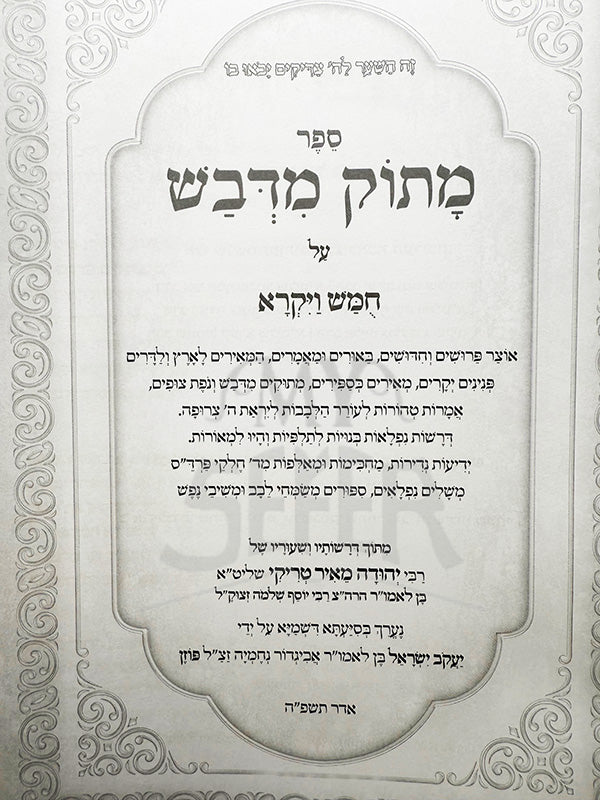 זֶה הַשַּׁעַר לַה' צַדִּיקִים יָבֹאוּ בוֹ
סֵפֶר
מָתוֹק מִדְּבַשׁ
עַל
חֻמַּשׁ וַיִּקְרָא
אוֹצַר פֵּרוּשִׁים וְחִדּוּשִׁים, בֵּאוּרִים וּמַאֲמָרִים, הַמְּאִירִים לָאָרֶץ וְלַדָּרִים
פְּנִינִים יְקָרִים, מְאִירִים כְּסַפִּירִים, מְתוּקִים מִדְּבַשׁ וְנֹפֶת צוּפִים,
אֲמָרוֹת טְהוֹרוֹת לְעוֹרֵר הַלְּבָבוֹת לְיִרְאַת ה' צְרוּפָה.
דְּרָשׁוֹת נִפְלָאוֹת בְּנוּיוֹת לְתַלְפִּיּוֹת וְהָיוּ לִמְאוֹרוֹת.
יְדִיעוֹת נְדִירוֹת, מַחְכִּימוֹת וּמְאַלְּפוֹת מִד' חֶלְקֵי פַּרְדֵּ"ס
מְשָׁלִים נִפְלָאִים, סִפּוּרִים מְשַׂמְּחֵי לֵבָב וּמְשִׁיבֵי נֶפֶשׁ
מִתּוֹךְ דְּרָשׁוֹתָיו וְשִׁעוּרָיו שֶׁל
רַבִּי יְהוּדָה מֵאִיר טְרִיקִי שליט"א
בֶּן לְאמו"ר הרה"צ רַבִּי יוֹסֵף שְׁלֹמֹה זצוק"ל
נֶעֱרַךְ בְּסִיַּעְתָּא דִּשְׁמַיָּא עַל יְדֵי
יַעֲקֹב יִשְׂרָאֵל בֶּן לְאמו"ר אֲבִיגְדוֹר נְחֶמְיָה זַצַ"ל פּוֹזֶן
אדר תשפ"ה
MY
SEFER